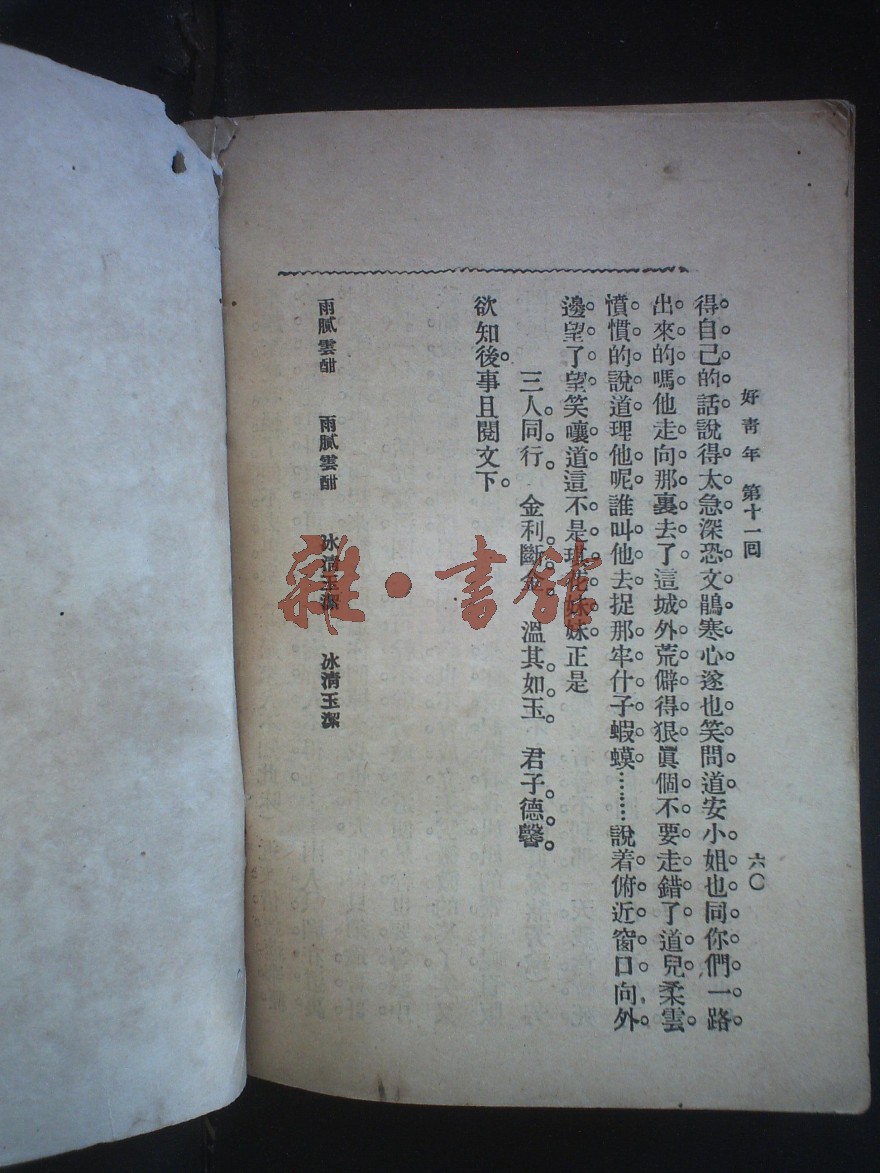 好青年 第十一囘 六〇
得自己的話說得太急深恐文鵑寒心遂也笑問道安小姐也同你們一路
出來的嗎他走向那裏去了這城外荒僻得狠眞個不要走錯了道兒柔雲
憤慣的說道理他呢誰叫他去捉那牢什子蝦蟆………說着俯近窗口向外
邊望了望笑嚷道這不是 妹妹正是
三人同行。 金利斷金。 溫其如玉。 君子德馨。
欲知後事。且閱文下。
雨膩雲酣 雨膩雲酣 冰清玉潔 冰清玉潔
雜·書館